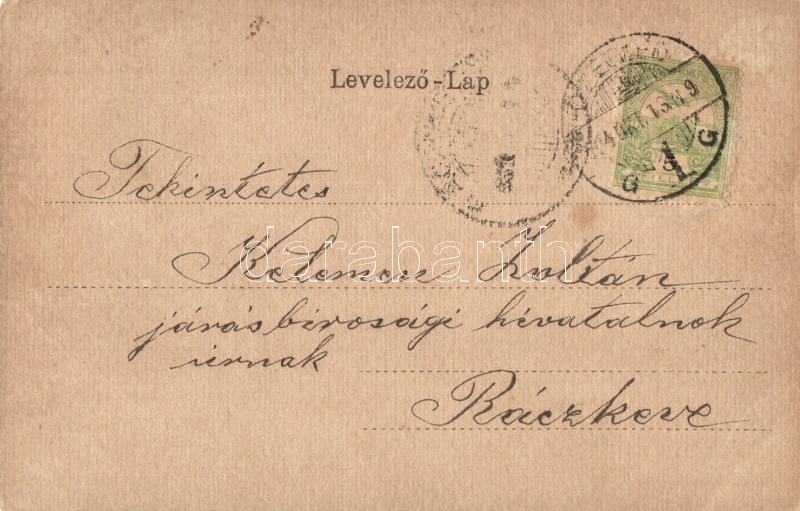 Levelező-Lap
Tekintetes
Kelemen Zoltán
járásbirosági hivatalnok
urnak
Ráczkeve
darabanth